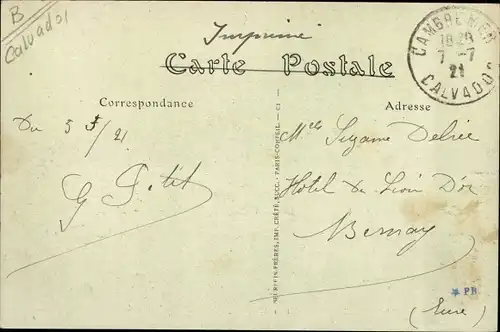 B
Calvados
Imprimé
Carte Postale
CAMBREMER
18 20
7 -7
21
CALVADOS
Correspondance
Adresse
Du 5 /21
G Petit
Melle Suzanne
Hotel du Lion D'or
Bernay
(Eure)
NEURDEIN FRÈRES, IMP. CRÉTÉ, SUCC. - PARIS-CORBEIL. - C1
PB